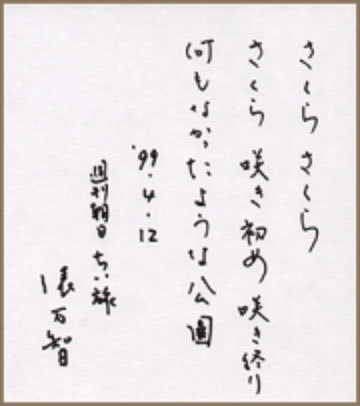 さくらさくら
さくら咲き初め咲き終り
何もなかったような公園
'99.4.12
週刊朝日 ちい旅
俵万智